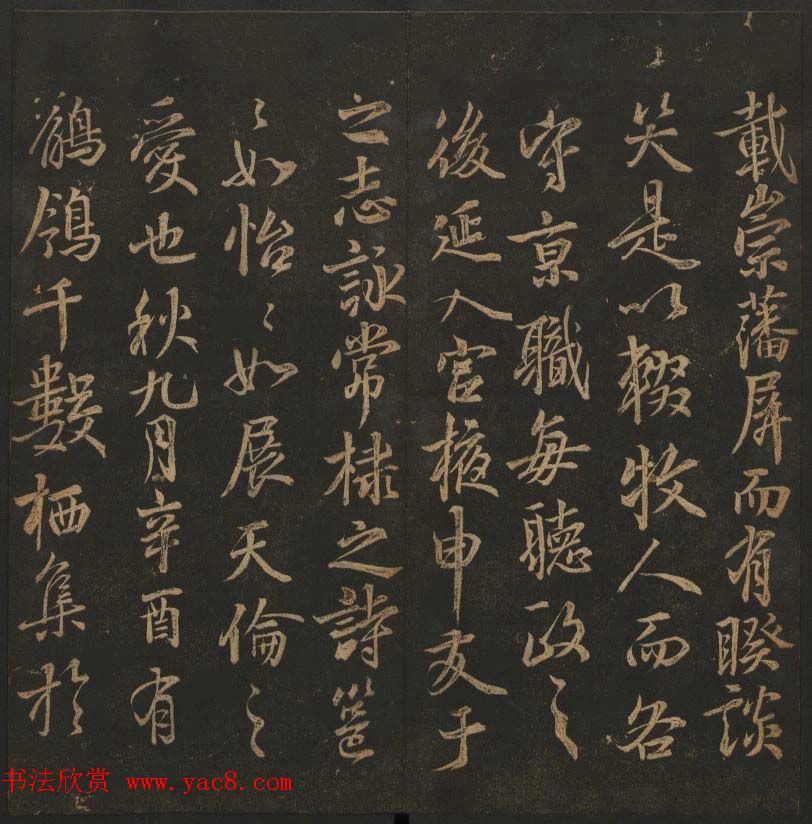 載崇藩屏而有睽談
笑是以輟牧人而各
守京職每聽政之
後延入宮掖申友于
之志詠常棣之詩邕
〻如怡〻如展天倫之
愛也秋九月辛酉有
鶺鴒千數栖集於
书法欣赏 www.yac8.com